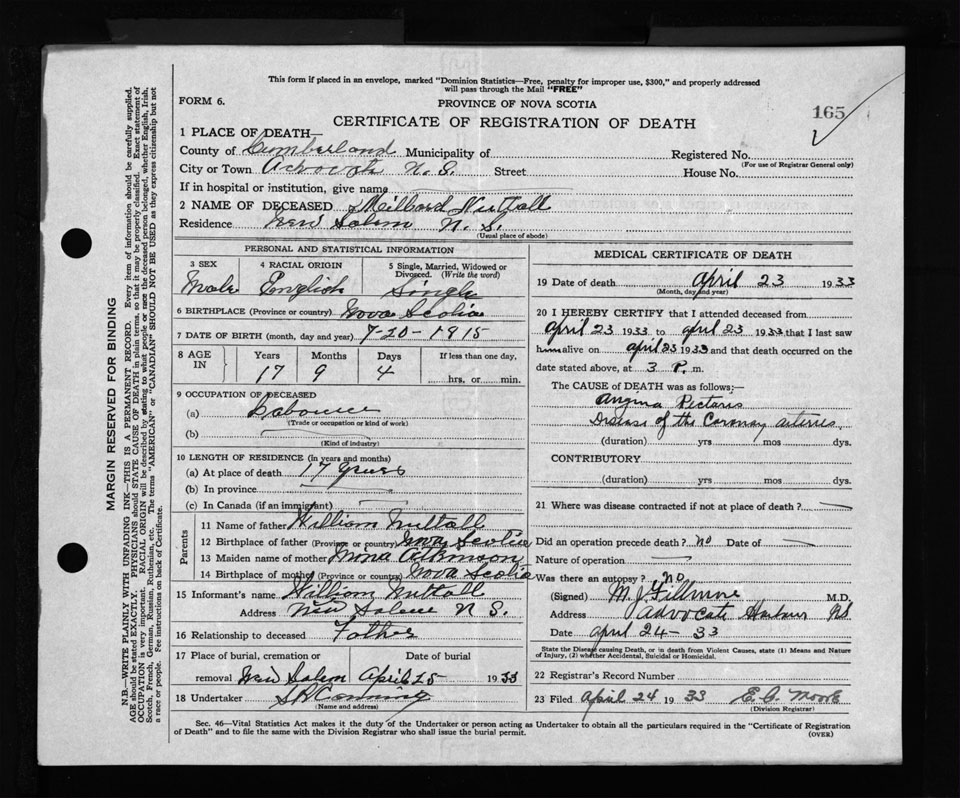 This form if placed in an envelope, marked "Dominion Statistics—Free, penalty for improper use, $300," and properly addressed
will pass through the Mail "FREE"
FORM 6.
PROVINCE OF NOVA SCOTIA
165
CERTIFICATE OF REGISTRATION OF DEATH
1 PLACE OF DEATH—
County of Cumberland Municipality of Registered No.
(For use of Registrar General only)
City or Town N.S. Street House No.
If in hospital or institution, give name
2 NAME OF DECEASED Nuttall
Residence New Salem N.S.
(Usual place of abode)
PERSONAL AND STATISTICAL INFORMATION
3 SEX 4 RACIAL ORIGIN 5 Single, Married, Widowed or
Divorced. (Write the word)
Male English Single
6 BIRTHPLACE (Province or country) Nova Scotia
7 DATE OF BIRTH (month, day and year) 7-20-1915
8 AGE IN Years Months Days If less than one day,
17 9 4 hrs. or min.
9 OCCUPATION OF DECEASED
(a) Labourer
(Trade or occupation or kind of work)
(b)
(Kind of industry)
10 LENGTH OF RESIDENCE (in years and months)
(a) At place of death 17 years
(b) In province
(c) In Canada (if an immigrant)
Parents
11 Name of father William Nuttall
12 Birthplace of father (Province or country) Nova Scotia
13 Maiden name of mother Atkinson
14 Birthplace of mother (Province or country) Nova Scotia
15 Informant's name William Nuttall
Address New Salem N S.
16 Relationship to deceased Father
17 Place of burial, cremation or Date of burial
removal New Salem April 25 1933
18 Undertaker
(Name and address)
MEDICAL CERTIFICATE OF DEATH
19 Date of death April 23 1933
(Month, day and year)
20 I HEREBY CERTIFY that I attended deceased from
April 23 1933 to April 23 1933 that I last saw
him alive on April 23 1933 and that death occurred on the
date stated above, at 3 P. m.
The CAUSE of DEATH was as follows:—
Angina Pectoris
Disease of the Coronary arteries
(duration) yrs mos dys.
CONTRIBUTORY
(duration) yrs mos dys.
21 Where was disease contracted if not at place of death?
Did an operation precede death? no Date of
Nature of operation
Was there an autopsy? no
(Signed) M. J. Fillmore M.D.
Address Advocate Harbour NS
Date April 24-33
State the Disease causing Death, or in death from Violent Causes, state (1) Means and Nature
of Injury, (2) whether Accidental, Suicidal or Homicidal.
22 Registrar's Record Number
23 Filed April 24 1933 E. C. Moore
(Division Registrar)
Sec. 46—Vital Statistics Act makes it the duty of the Undertaker or person acting as Undertaker to obtain all the particulars required in the "Certificate of Registration
of Death" and to file the same with the Division Registrar who shall issue the burial permit.
(OVER)
MARGIN RESERVED FOR BINDING
N.B.—WRITE PLAINLY WITH UNFADING INK—THIS IS A PERMANENT RECORD. Every item of information should be carefully supplied.
AGE should be stated EXACTLY. PHYSICIANS should STATE CAUSE OF DEATH in plain terms, so that it may be properly classified. Exact statement of
OCCUPATION is very important. RACIAL ORIGIN will be described by stating to what people or race the deceased person belonged, whether English, Irish,
Scotch, French, German, Russian, Ruthenian, etc. The terms "AMERICAN" or "CANADIAN" SHOULD NOT BE USED as they express citizenship but not
a race or people. Fee instructions on back of Certificate.